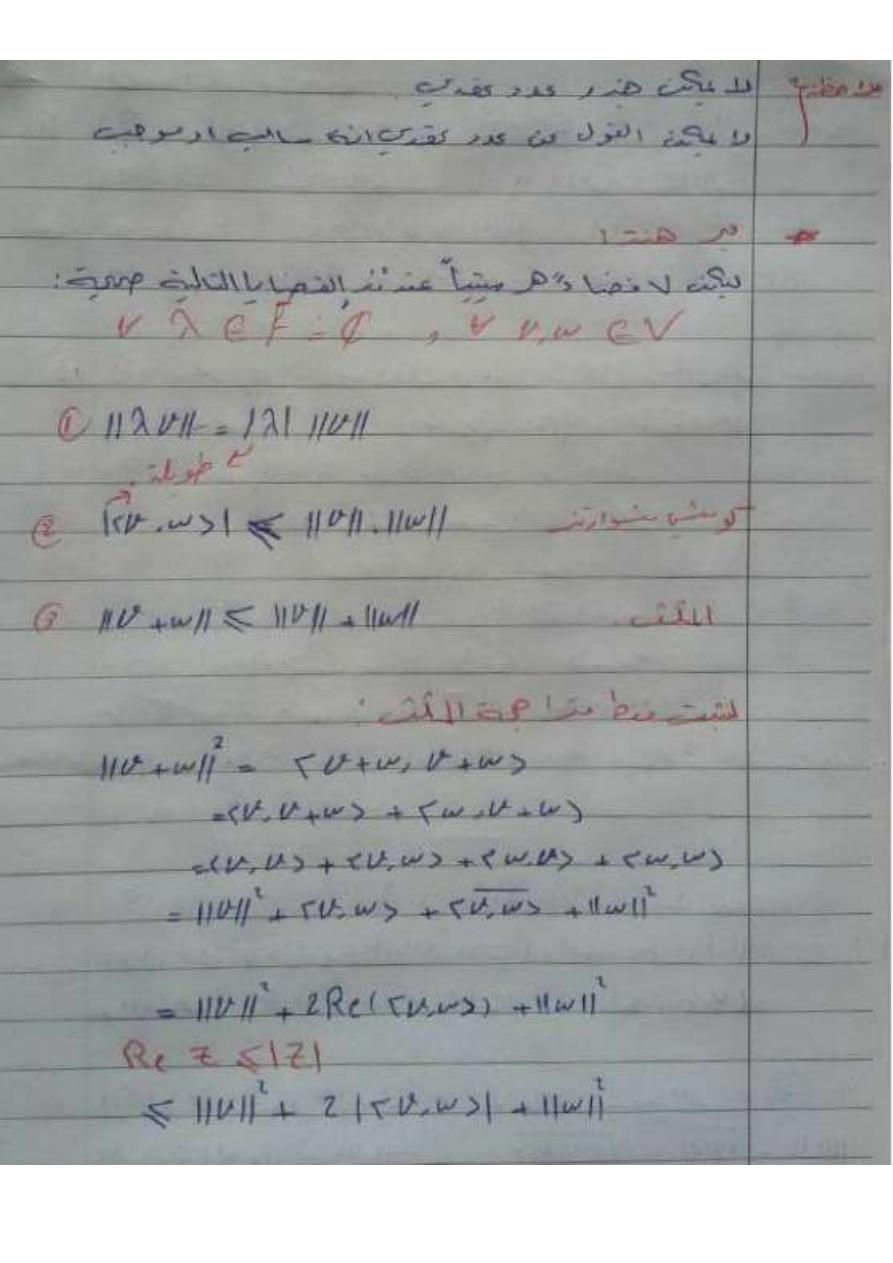 ملاحظة: لا يمكن جذر عدد عقدي.
لا يمكن القول عن عدد عقدي انه سالب او موجب
* مبرهنة 1
ليكن V فضاء هرميتياً عندئذ القضايا التالية صحيحة:
∀ λ ∈ F = ℂ , ∀ v, w ∈ V
① ||λv|| = |λ| ||v||
طويلة.
② |<v, w>| ≤ ||v||.||w|| كوشي شوارتز
③ ||v + w|| ≤ ||v|| + ||w|| المثلث.
لنثبت فقط متراجحة المثلث:
||v + w||² = <v + w, v + w>
= <v, v + w> + <w, v + w>
= <v, v> + <v, w> + <w, v> + <w, w>
= ||v||² + <v, w> + <v̅,̅ w̅> + ||w||²
= ||v||² + 2Re(<v, w>) + ||w||²
Re Z ≤ |Z|
≤ ||v||² + 2 |<v, w>| + ||w||²